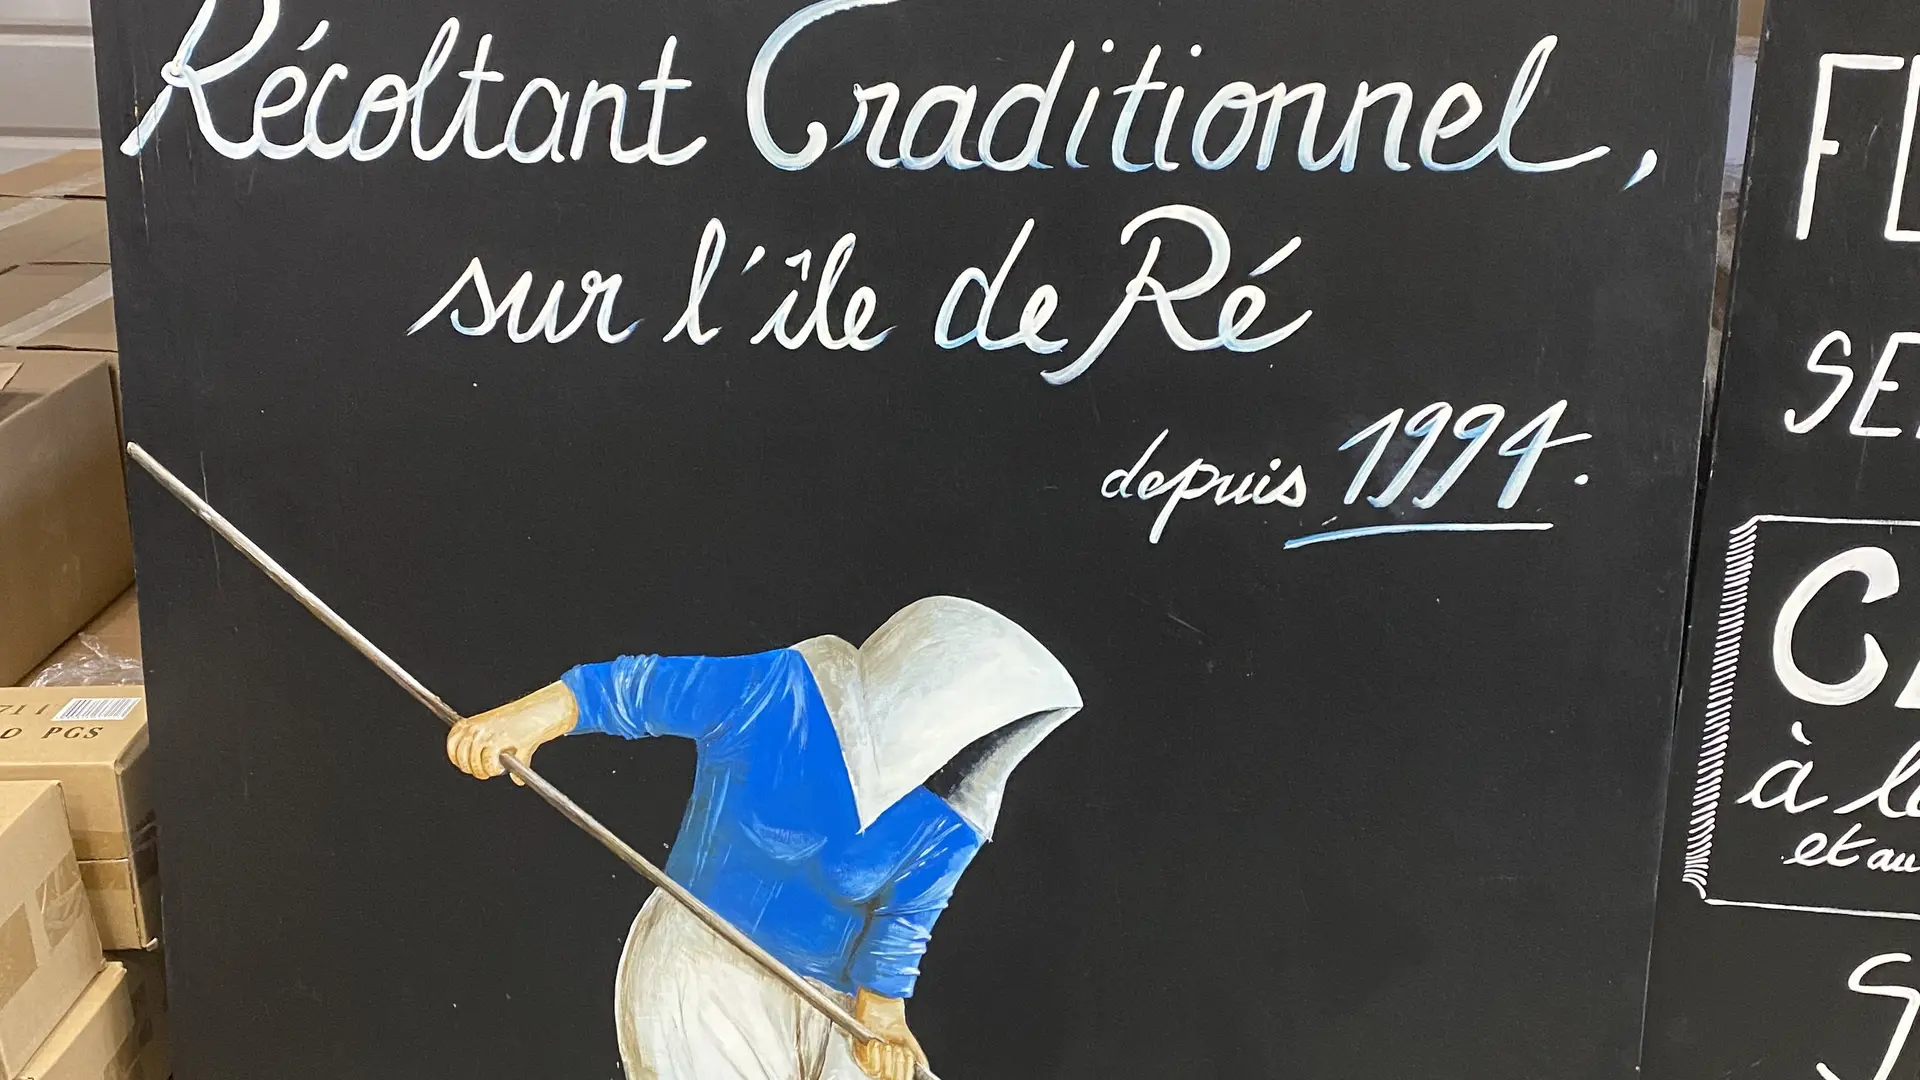 Récoltant Traditionnel,
sur l'île de Ré
depuis 1994.
à
et au
PGS